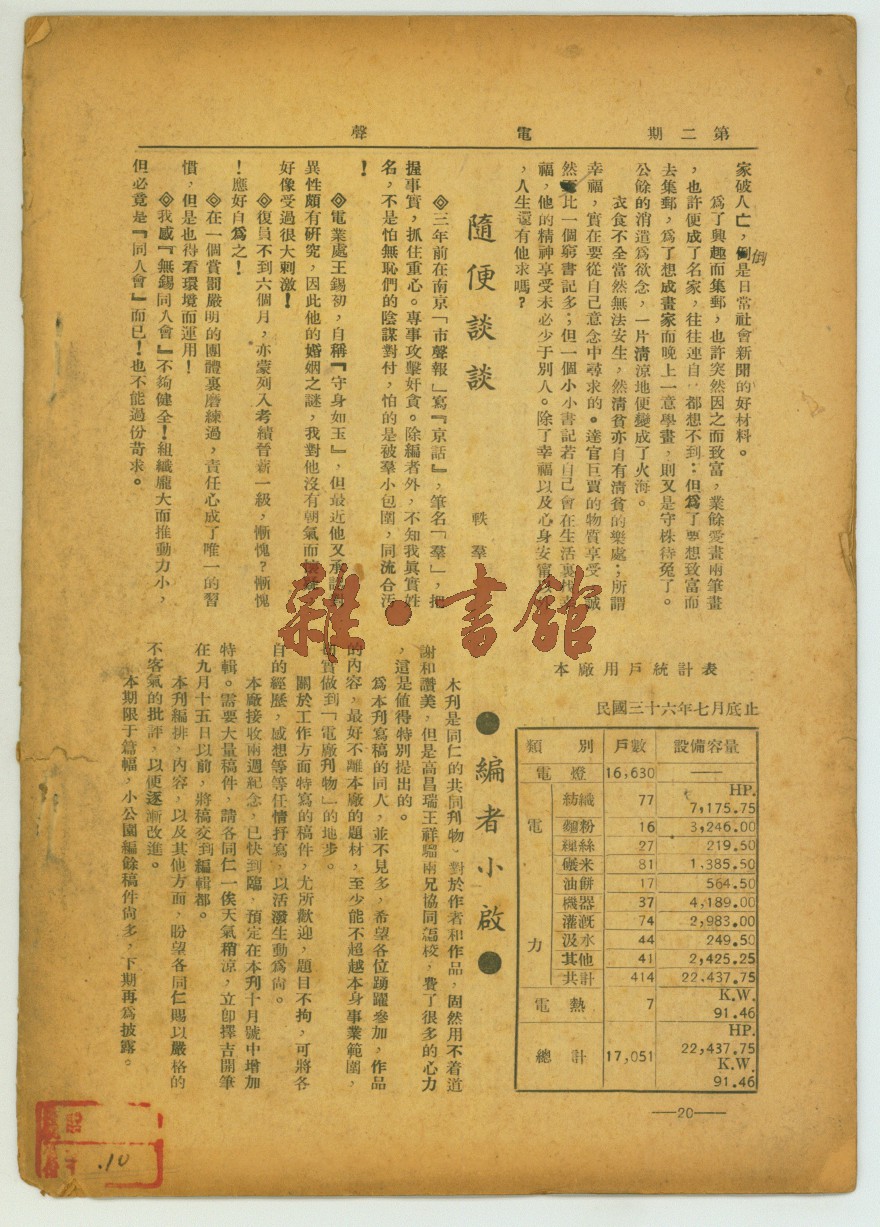 第二期
電
聲
家破人亡，倒是日常社會新聞的好材料。
倒
爲了興趣而集郵，也許突然因之而致富，業餘愛畫兩筆畫
，也許便成了名家，往往連自 都想不到：但爲了要想致富而
去集郵，爲了想成畫家而晚上一意學畫，則又是守株待兔了。
公餘的消遣爲欲念，一片清涼地便變成了火海。
衣食不全當然無法安生，然清貧亦自有清貧的樂處；所謂
幸福，實在要從自己意念中尋求的。達官巨賈的物質享受 誠
然 比一個窮書記多；但一個小小書記若自己會在生活裏
福，他的精神享受未必少于別人。除了幸福以及心身安甯以
，人生還有他求嗎？
隨便談談
軼羣
◈三年前在南京「市聲報」寫『京話』，筆名「羣」，把
握事實，抓住重心。專事攻擊奸貪。除編者外，不知我眞實姓
名，不是怕無恥們的陰謀對付，怕的是被羣小包圍，同流合汚
！
◈電業處王錫初，自稱『守身如玉』，但最近他又承認對
異性頗有硏究，因此他的婚姻之謎，我對他沒有朝氣而
好像受過很大刺激！
◈復員不到六個月，亦蒙列入考績晉薪一級，慚愧？慚愧
！應好自爲之！
◈在一個賞罰嚴明的團體裏磨練過，責任心成了唯一的習
慣，但是也得看環境而運用！
◈我感『無錫同人會』不夠健全！組織龐大而推動力小，
但必竟是『同人會』而已！也不能過份苛求。
本廠用戶統計表
民國三十六年七月底止
類別 戶數 設備容量
電燈 16,630 ——
電力
紡織 77 HP. 7,175.75
麵粉 16 3,246.00
繅絲 27 219.50
礱米 81 1,385.50
油餅 17 564.50
機器 37 4,189.00
灌溉 74 2,983.00
汲水 44 249.50
其他 41 2,425.25
共計 414 22,437.75
電熱 7 K.W. 91.46
總計 17,051 HP. 22,437.75 K.W. 91.46
●編者小啟●
本刊是同仁的共同刊物 對於作者和作品，固然用不着道
謝和讚美，但是高昌瑞王祥騮兩兄協同 校，費了很多的心力
，這是値得特別提出的。
爲本刊寫稿的同人，並不見多，希望各位踴躍參加，作品
的內容，最好不離本廠的題材，至少能不超越本身事業範圍，
切實做到「電廠刊物」的地步。
關於工作方面特寫的稿件，尤所歡迎，題目不拘，可將各
自的經歷，感想等等任情抒寫，以活潑生動爲尚。
本廠接收兩週紀念，已快到臨，預定在本刊十月號中增加
特輯。需要大量稿件，請各同仁一俟天氣稍涼，立卽擇吉開筆
在九月十五日以前，將稿交到編輯部。
本刊編排，內容，以及其他方面，盼望各同仁賜以嚴格的
不客氣的批評，以便逐漸改進。
本期限于篇幅，小公園編餘稿件尚多，下期再爲披露。
—20—
雜·書館
.10